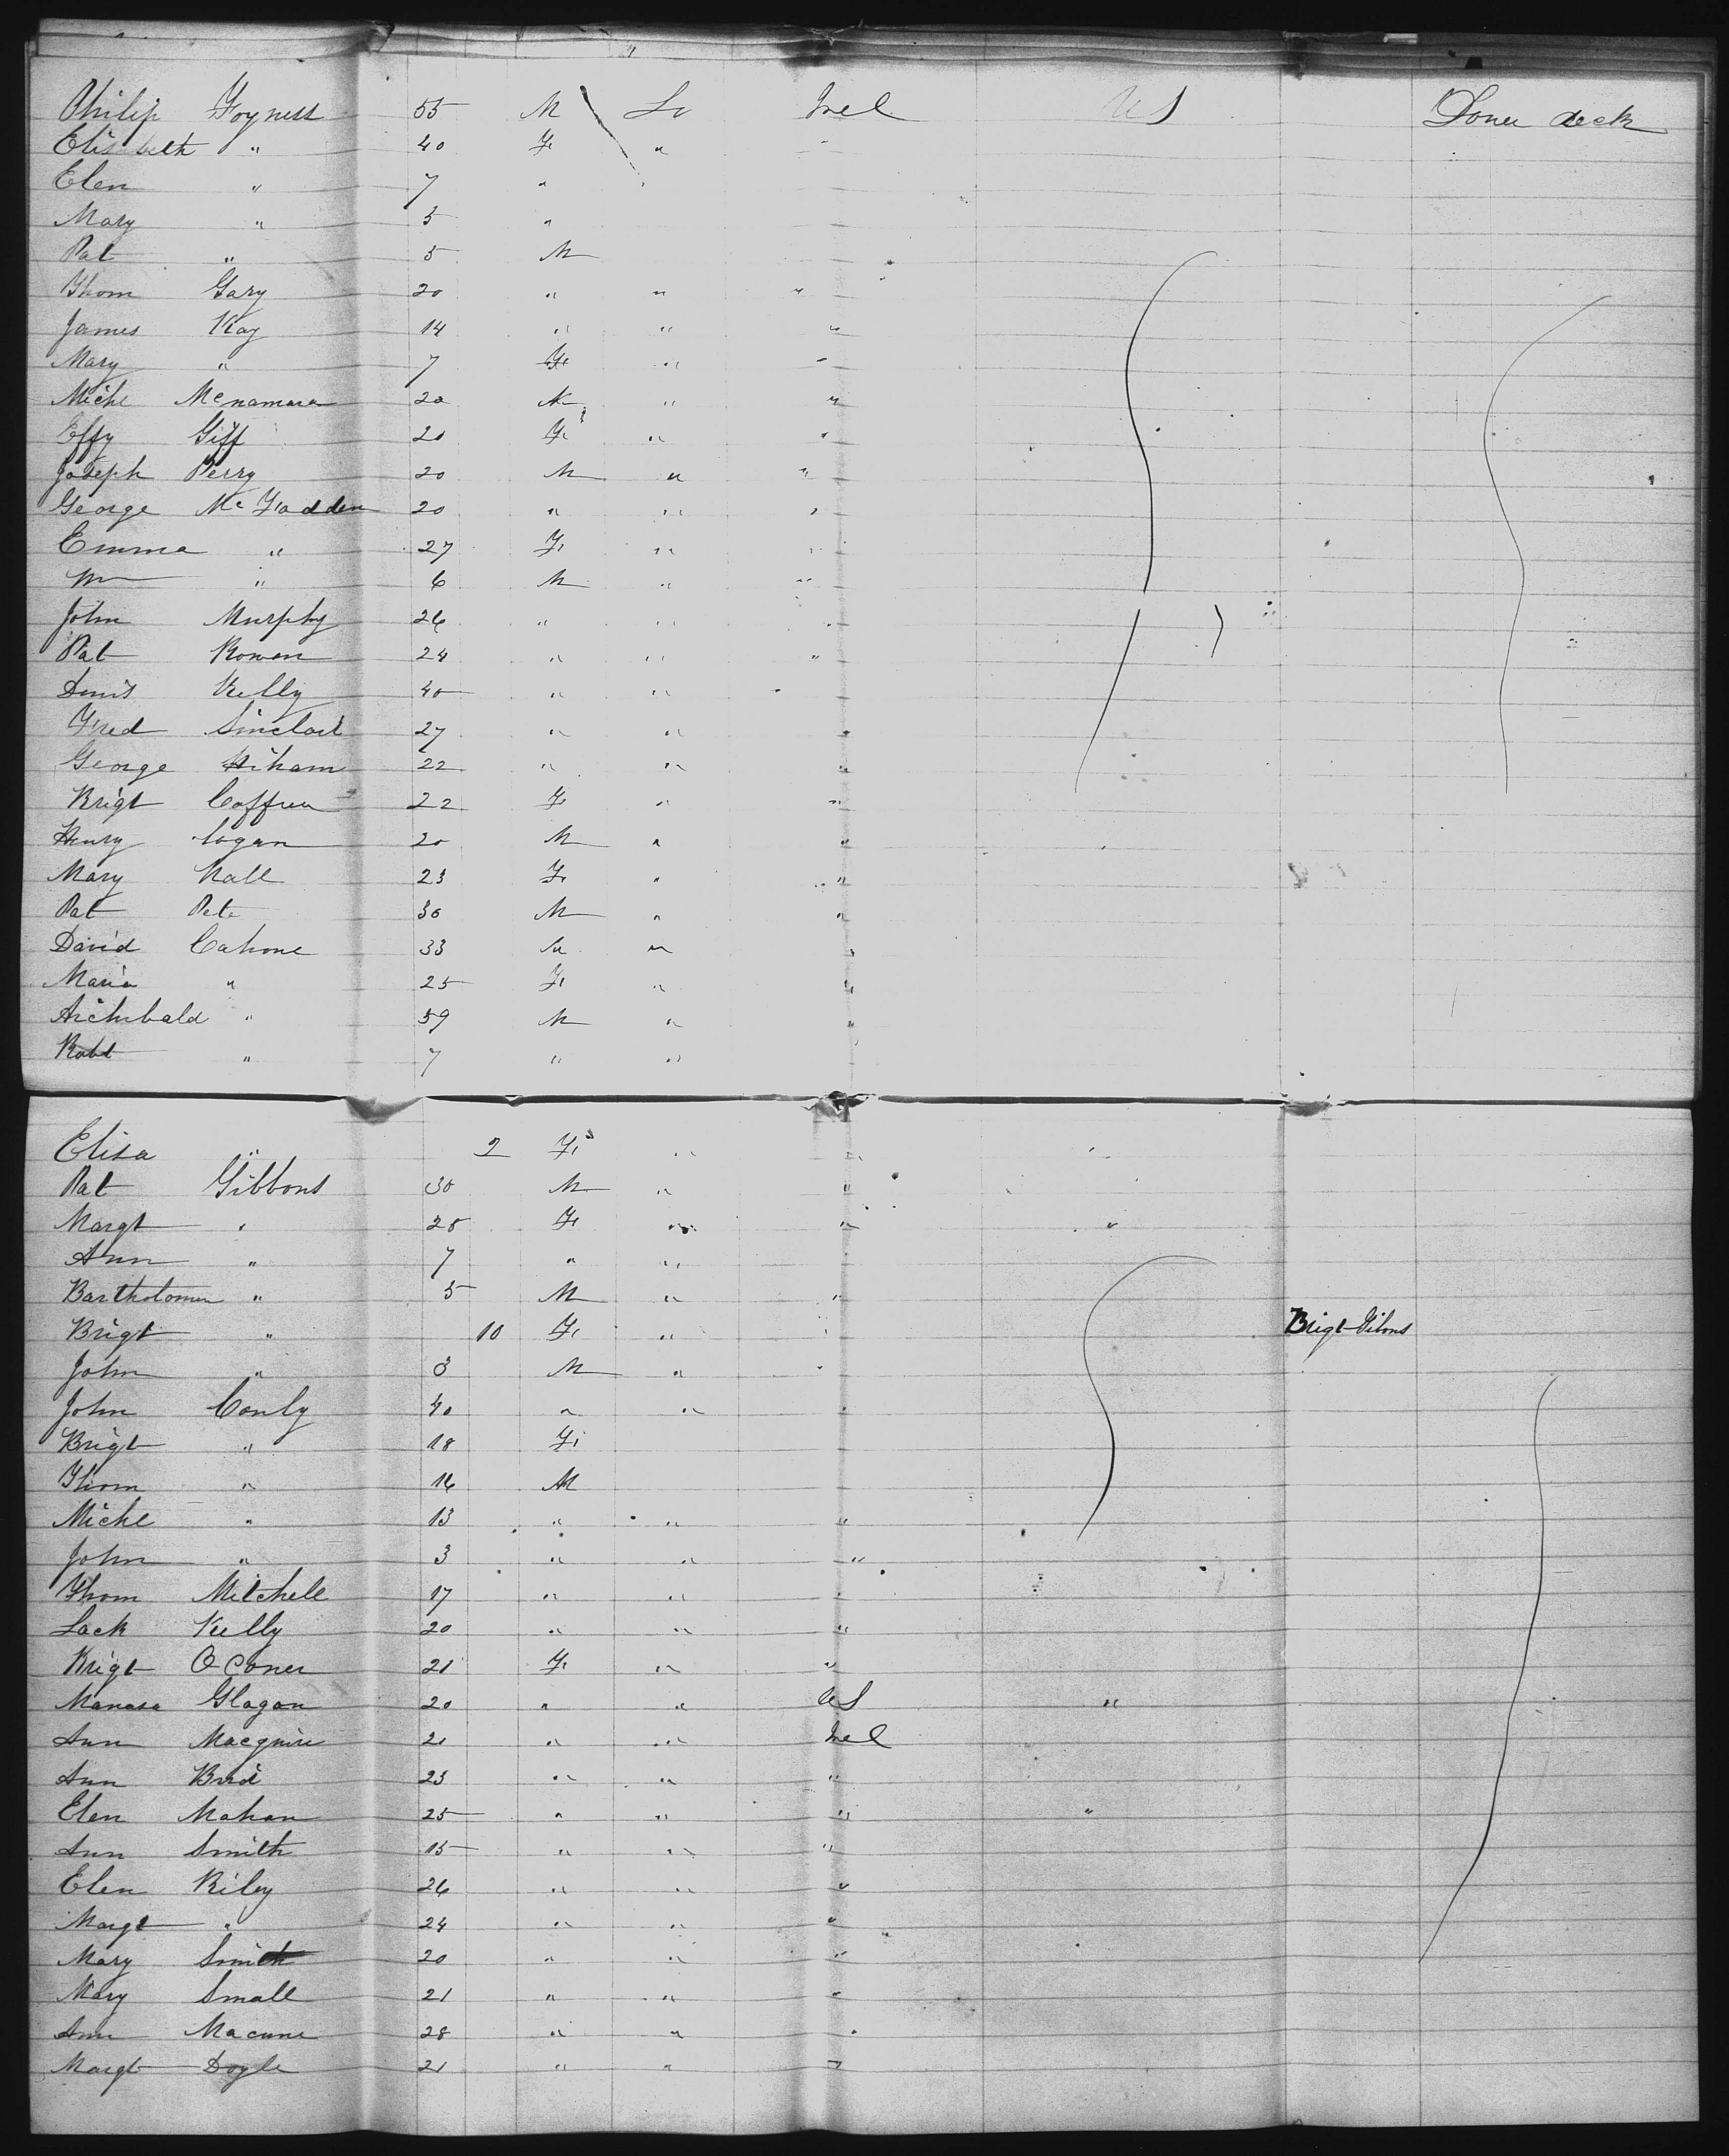 Philip Foyness 55 M Lo Irel US Lower deck
Elisabeth " 40 F "
Elen " 7 "
Mary " 5 "
Pat " 5 M
Thom Gary 20 " " "
James Kay 14 " " "
Mary " 7 F " "
Michl McNamara 20 M " "
Effy Giff 20 F " "
Joseph Perry 20 M " "
George McFadden 20 " " "
Emma " 27 F " "
Wm " 6 M " "
John Murphy 26 " " "
Pat Rowen 24 " " "
Denis Kelly 40 " " "
Fred Sinclair 27 " " "
George Hiham 22 " " "
Brigt Coffree 22 F " "
Henry Cogan 20 M " "
Mary Nall 23 F " "
Pat Pete 30 M " "
David Cahone 33 M " "
Maria " 25 F " "
Archibald " 59 M " "
Robt " 7 " "
Elisa " 2 F " " "
Pat Gibbons 30 M " "
Margt " 28 F " " "
Ann " 7 " " "
Bartholomew " 5 M " "
Brigt " 10 F " " Brigt Gibons
John " 3 M " "
John Conly 40 " " "
Brigt " 18 F
Thom " 16 M
Michl " 13 " " "
John " 3 " " "
Thom Mitchell 17 " " "
Lack Kelly 20 " " "
Brigt OConer 21 F " "
Manasa Glagan 20 " " US "
Ann Macguire 21 " " Irel
Ann Bird 23 " " "
Elen Mahan 25 " " " "
Ann Smith 15 " " "
Elen Riley 26 " " "
Margt " 24 " " "
Mary Smith 20 " " "
Mary Small 21 " " "
Ann Macune 28 " " "
Margt Doyle 21 " " "